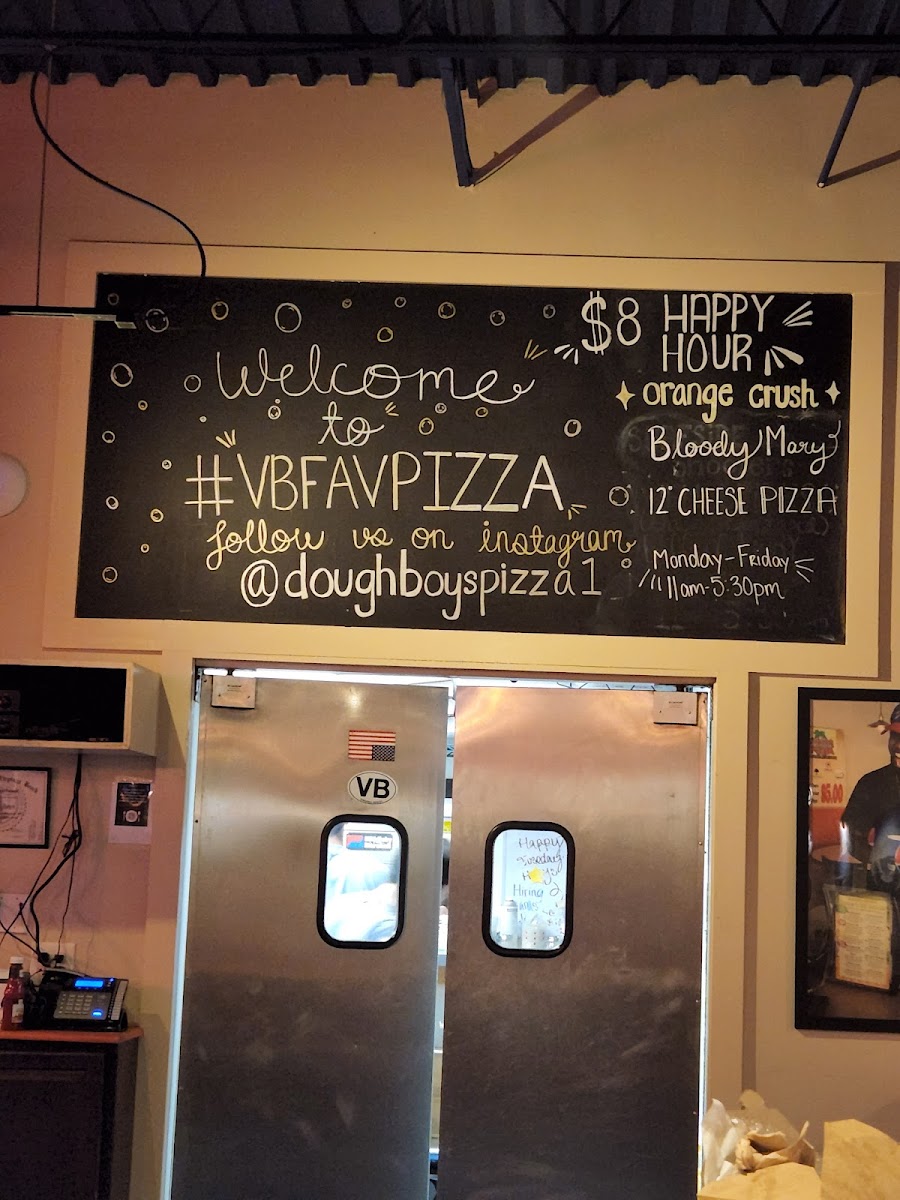 Welcome
to
#VBFAVPIZZA
follow us on instagram
@doughboyspizza1
$8 HAPPY
HOUR
orange crush
Bloody Mary
12" CHEESE PIZZA
Monday-Friday
11am-5:30pm
VB
Happy
Tuesday
Hiring
$5.00